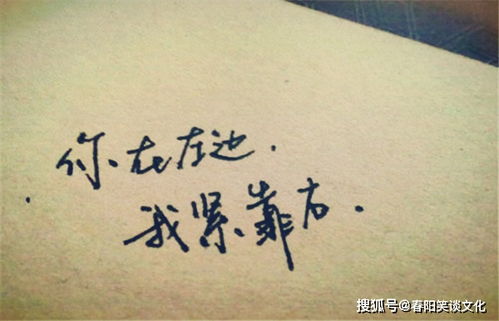 你在左边.
我紧靠右.
搜狐号@春阳笑谈文化